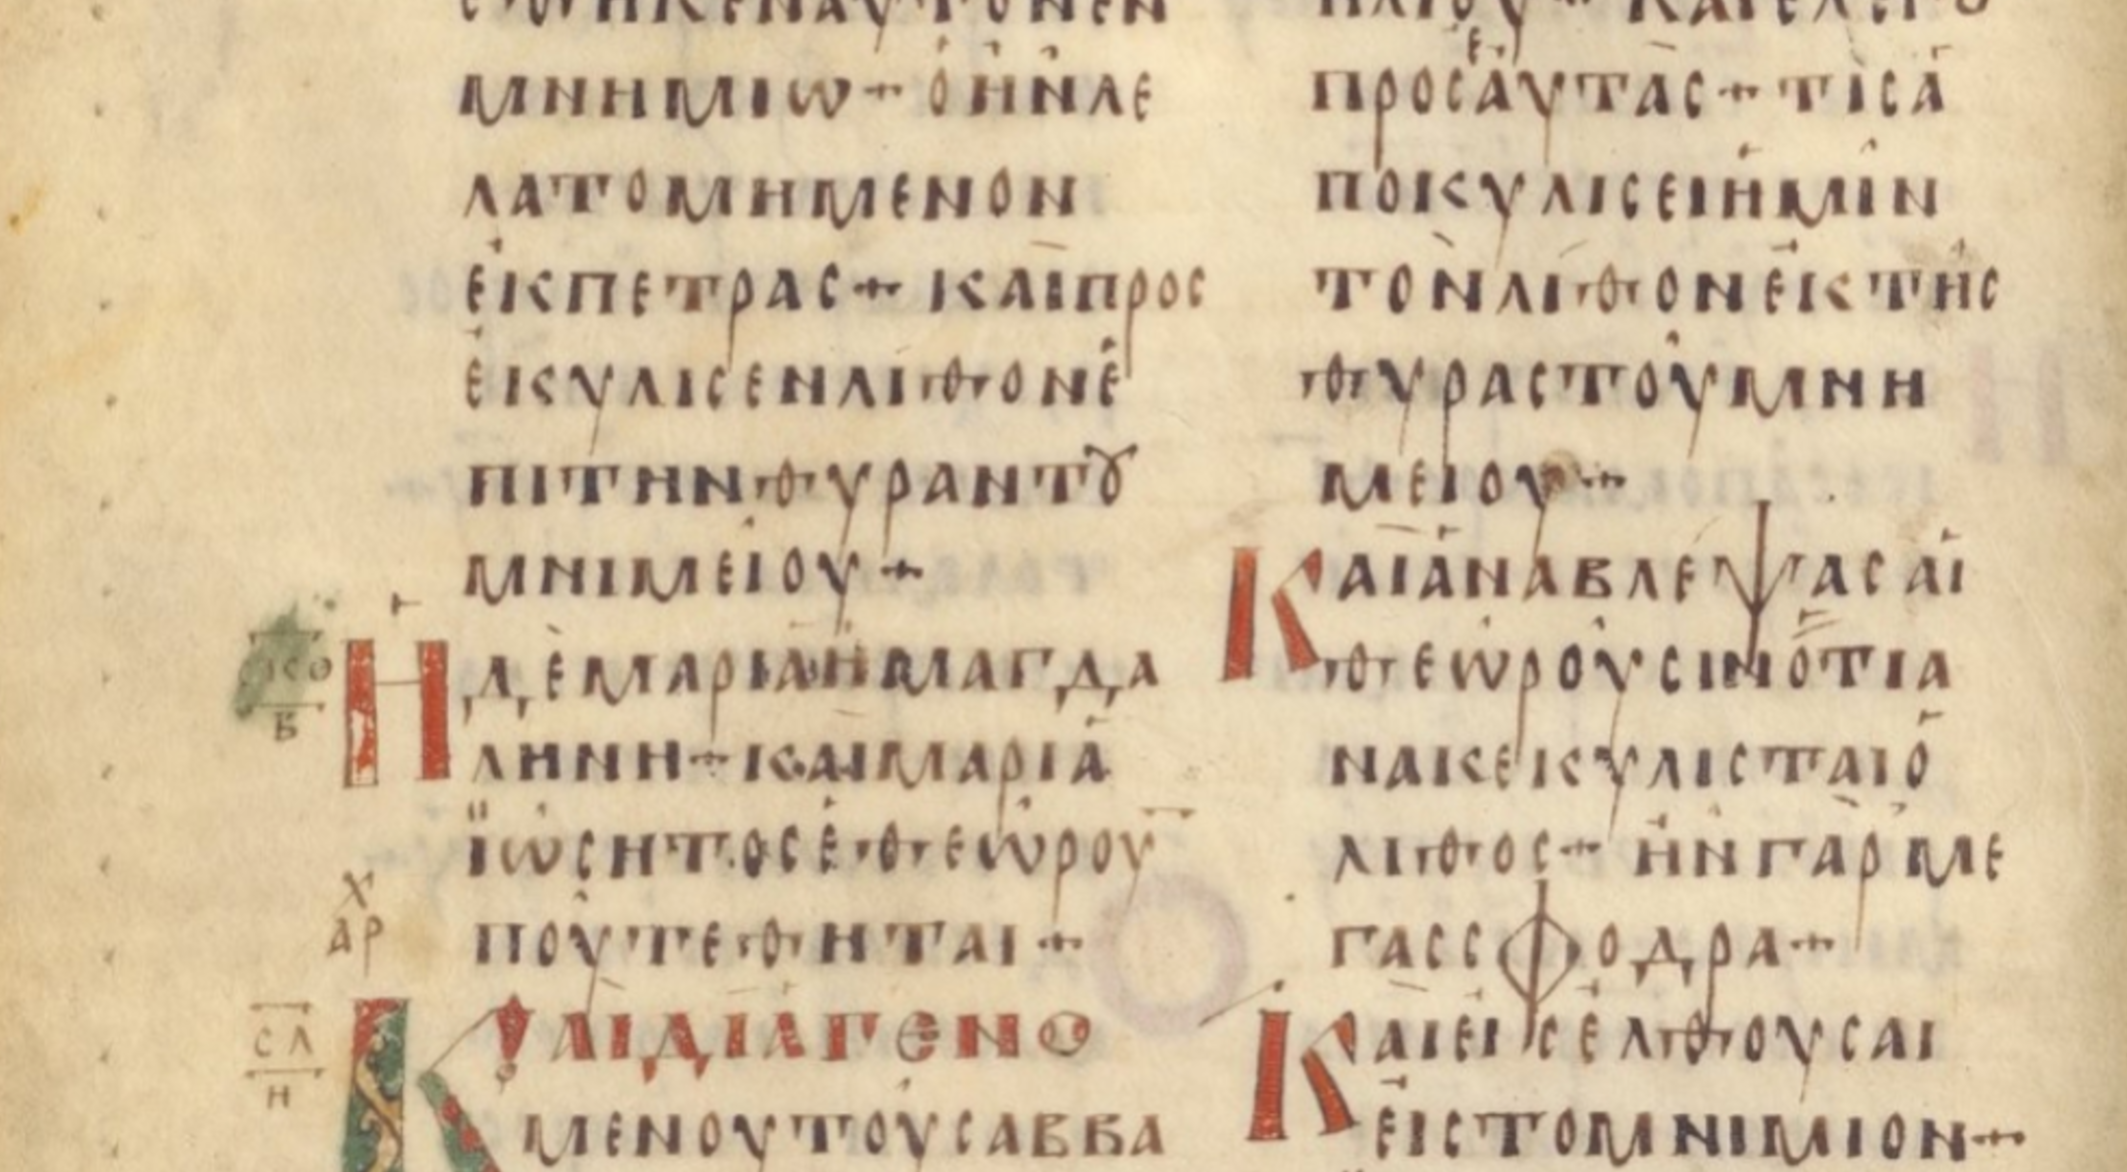 ΜΝΗΜΙΩ+ ὉἨΝΛΕ
ΛΑΤΟΜΗΜΕΝΟΝ
ἘΚΠΕΤΡΑΣ+ ΚΑῚΠΡΟΣ
ἘΚΥΛΙΣΕΝΛΙΘΟΝἘ
ΠΙΤΗΝΘΥΡΑΝΤȢ
ΜΝΙΜΕΊΟΥ+
ΣΚΘ
Β
ἩΔῈΜΑΡΙΑἩΜΑΓΔΑ
ΛΗΝΗ+ΚΑΙΜΑΡΙΑ
ΪΩΣΗΤΟΣἘΘΕΏΡΟΥ
Χ
ΑΡ
ΠΟΥΤΕΘΗΤΑΙ+
ΣΛ
Η
ΚΑΙΔΙΑΓΕΝΟ
ΜΕΝΟΥΤΟΥΣΑΒΒΑ
ΠΡΟΣἙΑΥΤΑΣ+ΤΙΣἈ
ΠΟΚΥΛΙΣΕΙἩΜΙΝ
ΤῸΝΛΙΘΟΝἘΚΤΗΣ
ΘΥΡΑΣΤΟΥΜΝΗ
ΜΕΙΟΥ+
ΚΑΙἈΝΑΒΛΕΨΑΣΑΙ
ΘΕΩΡΟΥΣΙΝὍΤΙΑ
ΝΑΚΕΚΥΛΙΣΤΑΙὉ
ΛΙΘΟΣ+ ἮΝΓᾺΡΜΕ
ΓΑΣΣΦΟΔΡΑ+
ΚΑΙΕΙΣΕΛΘΟΥΣΑΙ
ΕΙΣΤΟΜΝΙΜΙΟΝ+